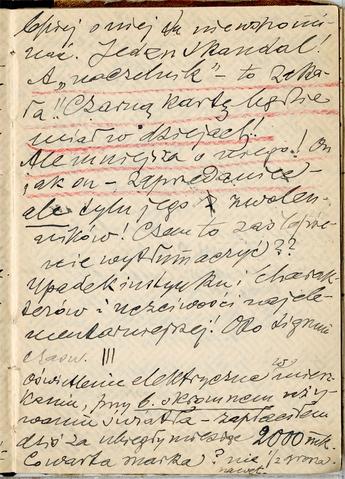 lepiej o niej tu nie wspomi-
nać. Jeden skandal!
A „naczelnik" – to zaka-
ła!! Czarną kartę będzie
miał w dziejach!
Ale mniejsza o niego! On
jak on – zaprzedaniec –
ale tylu jego zwolen-
ników! Czem to zaślepie-
nie wytłumaczyć??
Upadek instynktu i charak-
terów i uczciwości najele-
mentarniejszej! Oto signum
czasu. !!!
Oświetlenie elektryczne w miesz-
kaniu, przy b. skromnem uży-
waniu światła – zapłaciłem
dziś za ubiegły miesiąc 2000 mk.
Co warta marka? nie nawet ½ grosza.